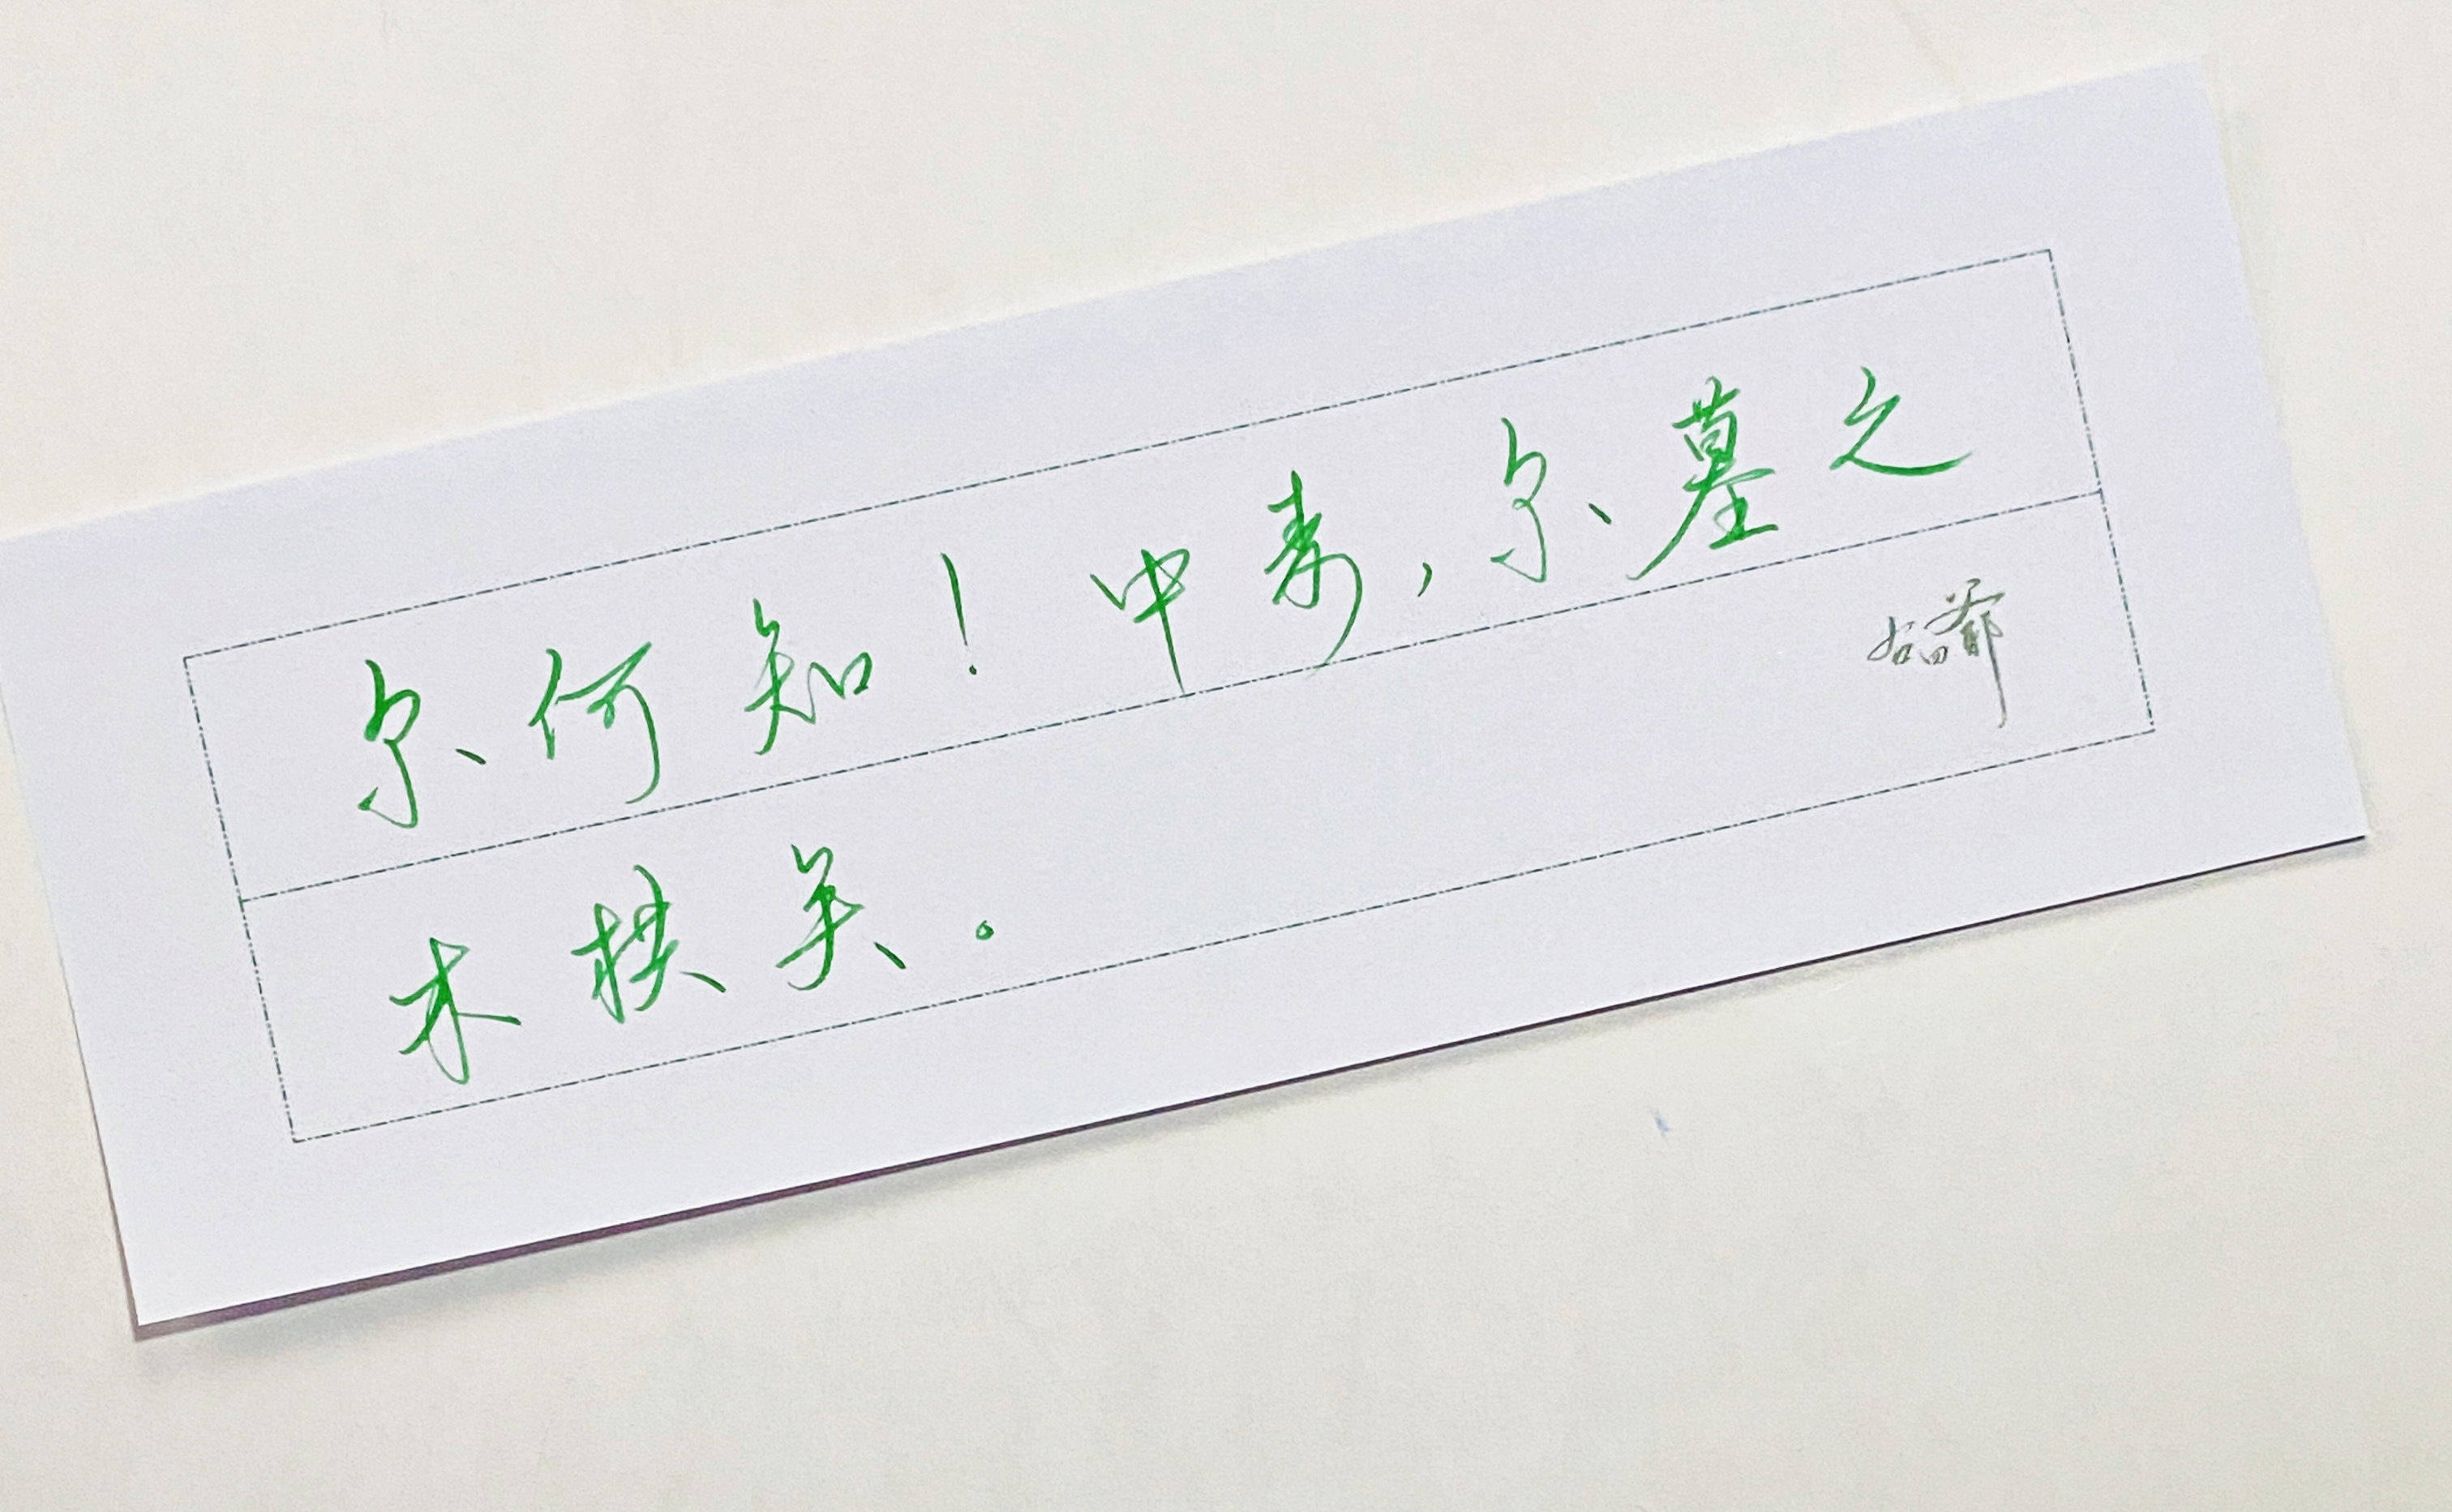 尔何知！中寿，尔墓之
木拱矣。